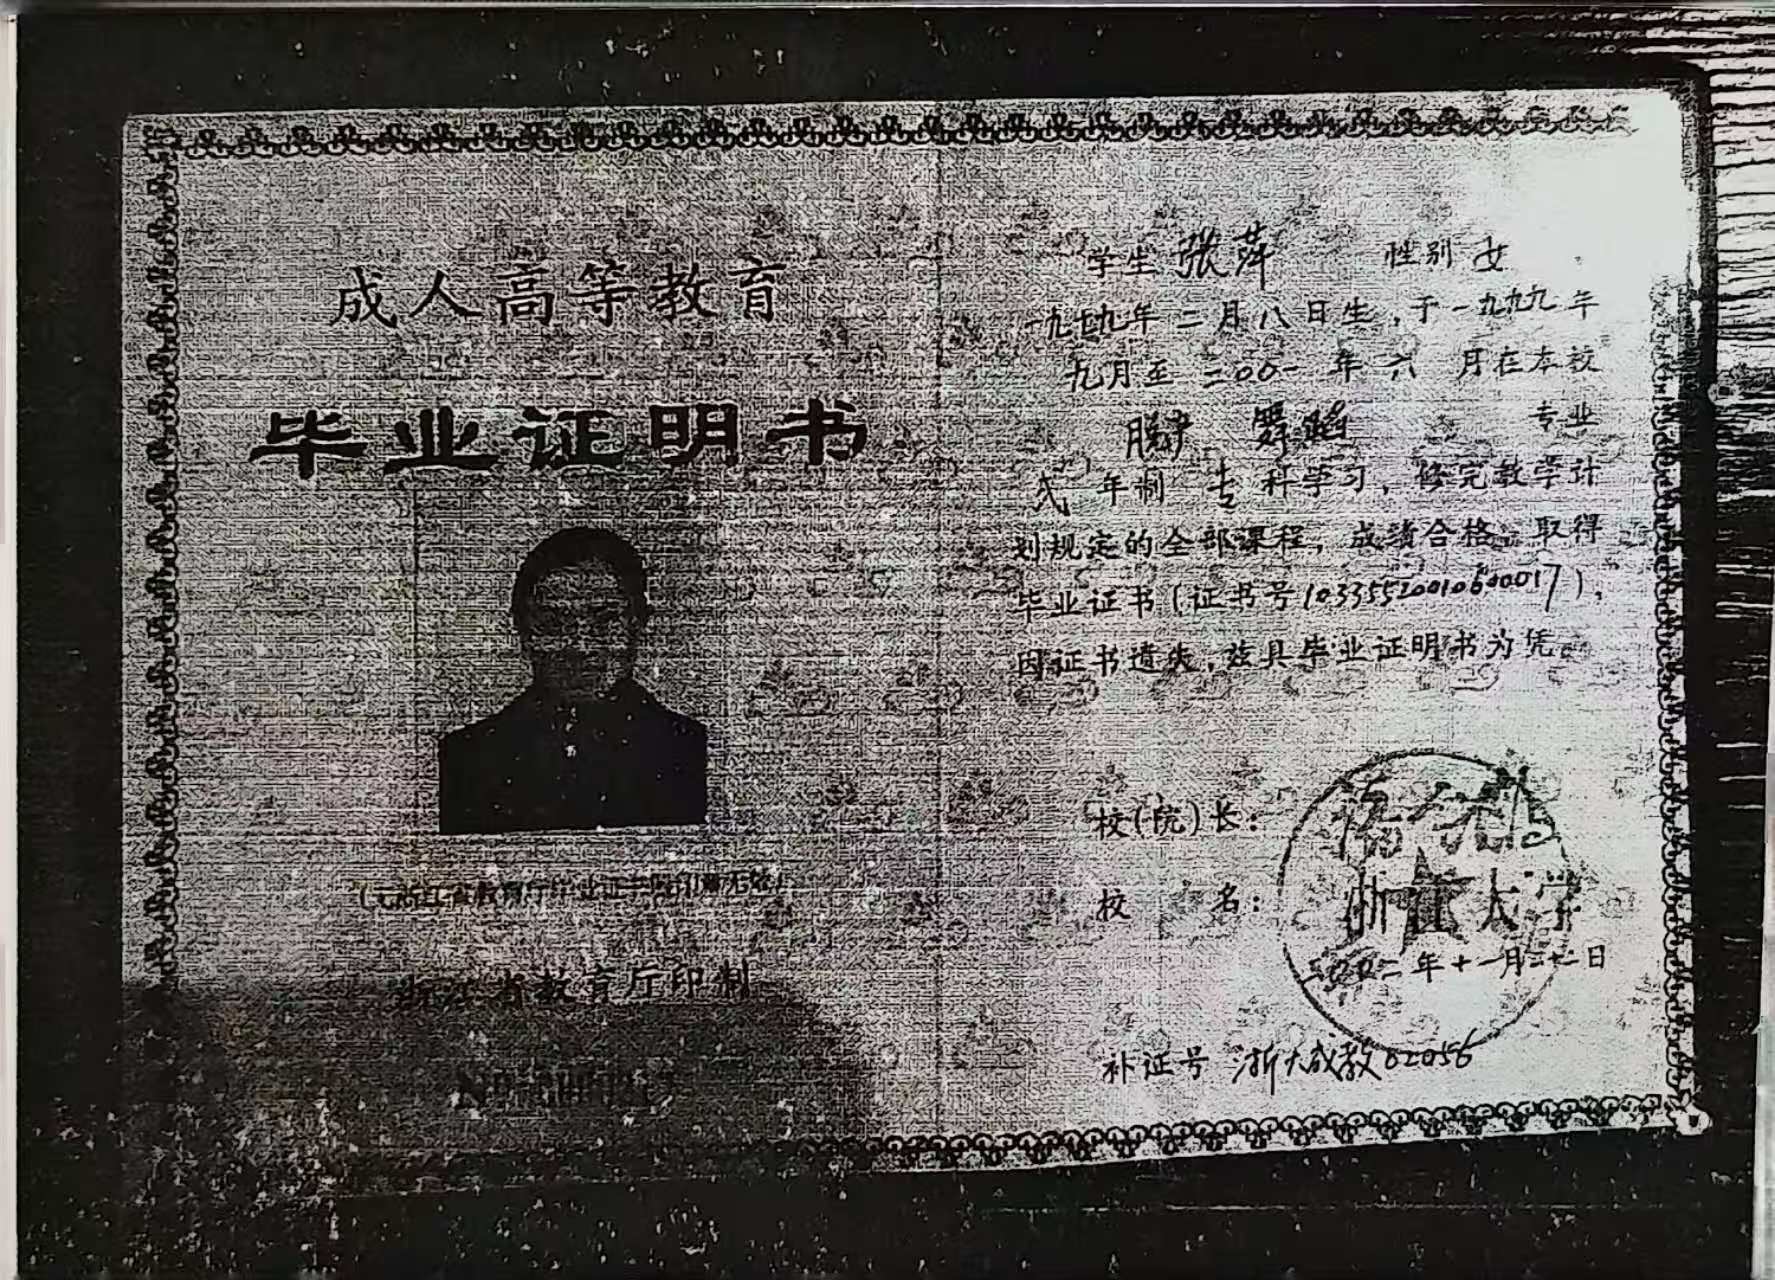 成人高等教育
毕业证明书
(无浙江省教育厅毕业证书专用章无效)
浙江省教育厅印制
学生 张萍 性别 女
一九七九年 二 月 八 日生,于一九九九年
九月至 二〇〇一 年 六 月在本校
脱产 舞蹈 专业
弍 年制 专 科学习,修完教学计
划规定的全部课程,成绩合格,取得
毕业证书(证书号103355200106000017),
因证书遗失,兹具毕业证明书为凭。
校(院)长:
校 名: 浙江大学
二〇〇二年十一月二十二日
补证号 浙大成教02056